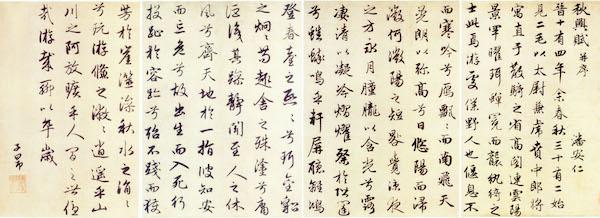 秋興賦 并序
潘安仁
晉十有四年余春秋三十有二始
見二毛以太尉掾兼虎賁中郎將
寓直于散騎之省高閣連雲陽
景罕曜珥蟬冕而襲紈綺之
士此焉游處僕野人也偃息不
而寒吟兮雁飄飄而南飛天
晃朗以彌高兮日悠陽而浸
微何微陽之短晷覺涼夜
之方永月朣朧以含光兮露
凄清以凝冷熠燿粲於階闥
兮蟋蟀鳴乎軒屏聽離鴻
登春臺之熙熙兮珥金貂
之炯炯苟趣舍之殊塗兮庸
詎識其躁靜聞至人之休
風兮齊天地於一指彼知安
而忘危兮故出生而入死行
投趾於容跡兮殆不踐而獲
芳於崖澨澡秋水之涓涓
兮玩游鯈之潎潎逍遙乎山
川之阿放曠乎人間之世優
哉游哉聊以卒歲
子昂